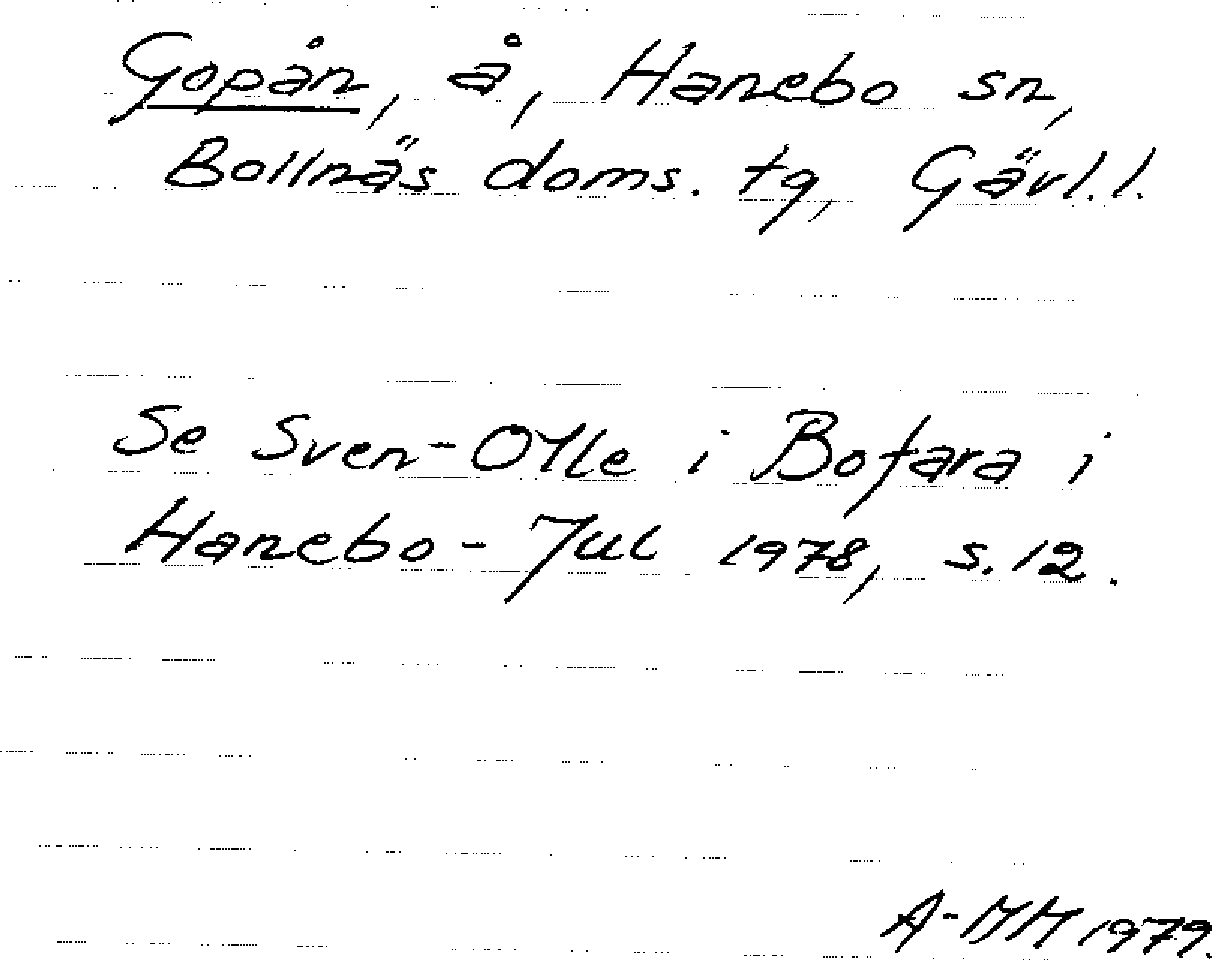 Gopån, å, Hanebo sn,
Bollnäs doms. tg, Gävl.l.
Se Sven-Olle i Bofara i
Hanebo-Jul 1978, s.12.
A-MM 1979.